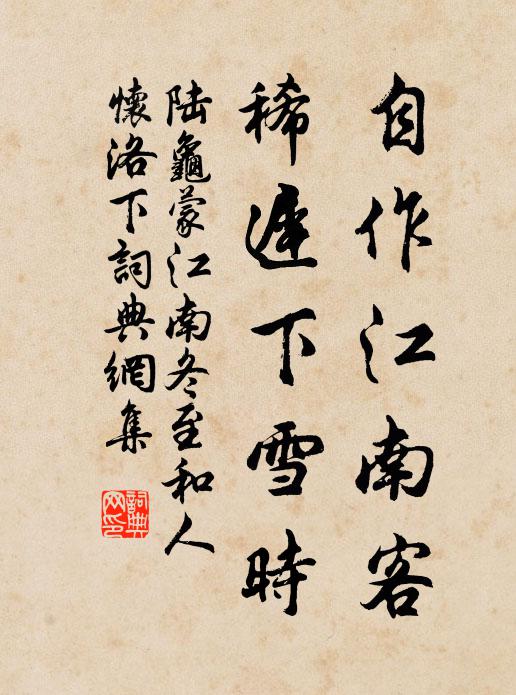 自作江南客
稀遲下雪時
陆龜蒙江南冬至和人
懷洛下詞典網集
詞典网印